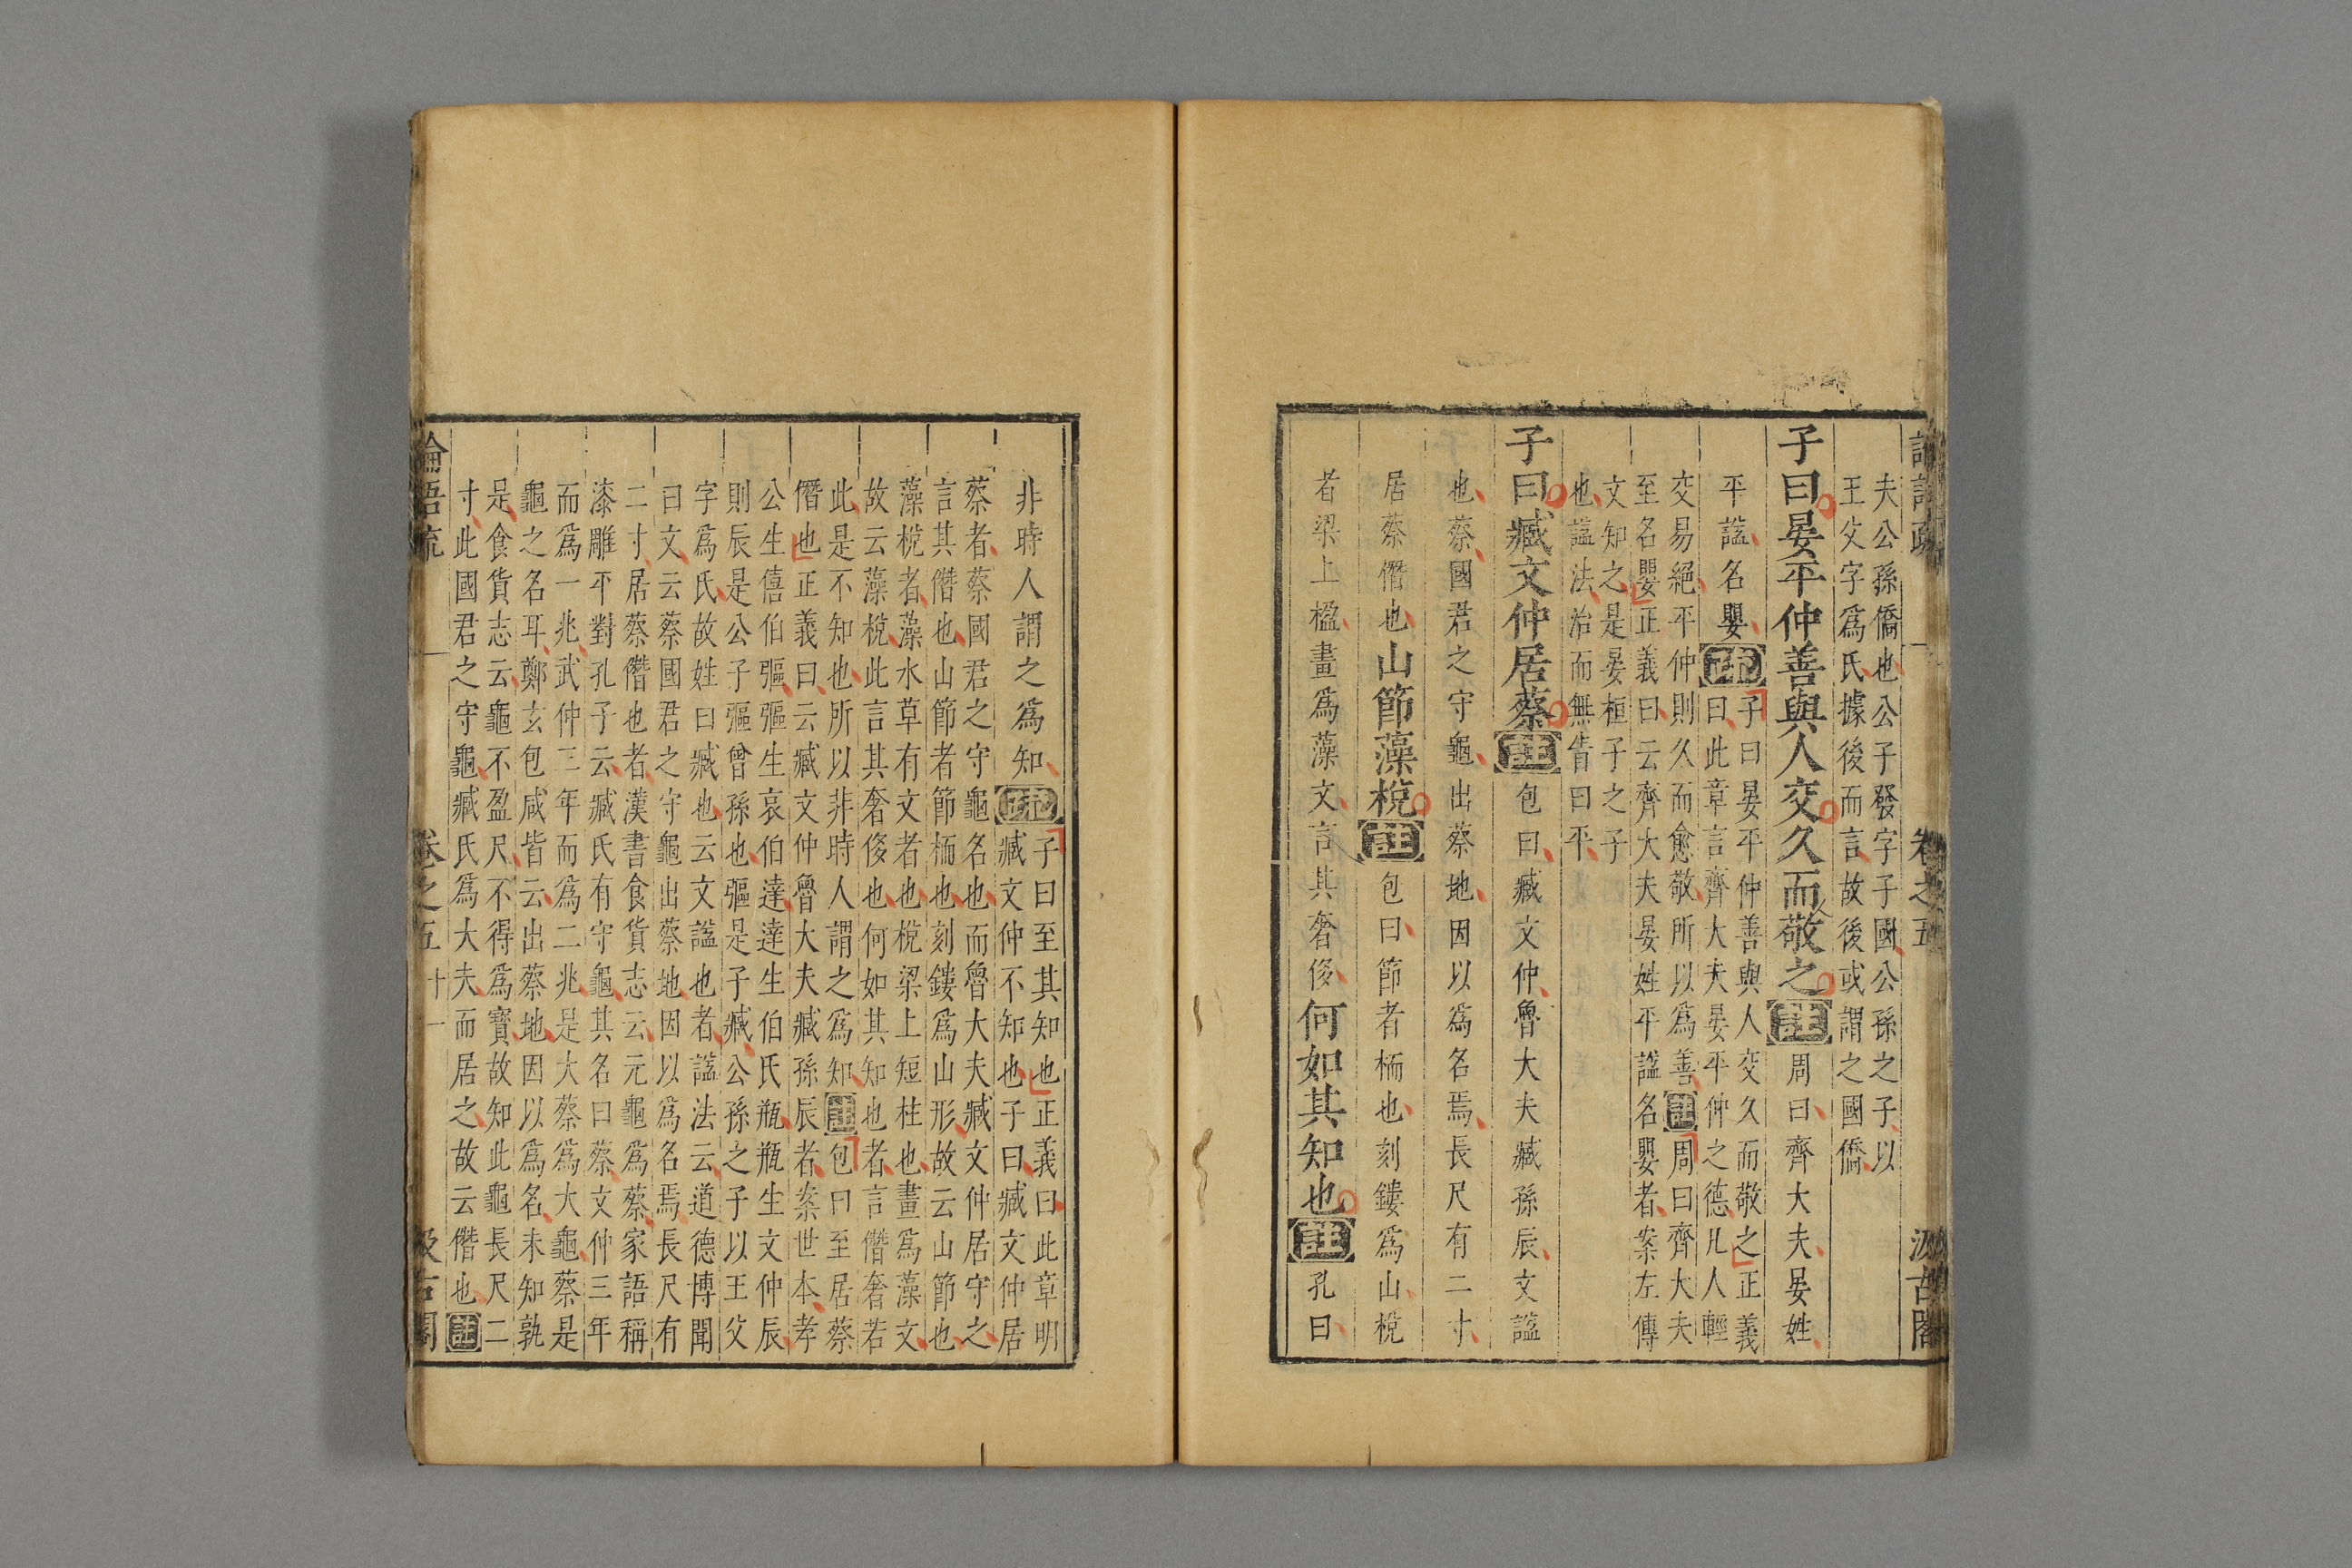 夫公孫僑也公子發字子國公孫之子以
王父字爲氏據後而言故後或謂之國僑
子曰晏平仲善與人交久而敬之註周曰齊大夫晏姓
平諡名嬰疏子曰晏平仲善與人交久而敬之正義
曰此章言齊大夫晏平仲之德凡人輕
交易絕平仲則久而愈敬所以爲善註周曰齊大夫
至名嬰正義曰云齊大夫晏姓平諡名嬰者案左傳
文知之是晏桓子之子
也諡法治而無眚曰平
子曰臧文仲居蔡註包曰臧文仲魯大夫臧孫辰文諡
也蔡國君之守龜出蔡地因以爲名焉長尺有二寸
居蔡僭也山節藻梲註包曰節者栭也刻鏤爲山梲
者梁上楹畫爲藻文言其奢侈何如其知也註孔曰
非時人謂之爲知疏子曰至其知也正義曰此章明
臧文仲不知也子曰臧文仲居
蔡者蔡國君之守龜名也而魯大夫臧文仲居守之
言其僭也山節者節栭也刻鏤爲山形故云山節也
藻梲者藻水草有文者也梲梁上短柱也畫爲藻文
故云藻梲此言其奢侈也何如其知也者言僭奢若
此是不知也所以非時人謂之爲知註包曰至居蔡
僭也正義曰云臧文仲魯大夫臧孫辰者案世本孝
公生僖伯彄彄生哀伯達達生伯氏瓶瓶生文仲辰
則辰是公子彄曾孫也彄是子臧公孫之子以王父
字爲氏故姓曰臧也云文諡也者諡法云道德博聞
曰文云蔡國君之守龜出蔡地因以爲名焉長尺有
二寸居蔡僭也者漢書食貨志云元龜爲蔡家語稱
漆雕平對孔子云臧氏有守龜其名曰蔡文仲三年
而爲一兆武仲三年而爲二兆是大蔡爲大龜蔡是
龜之名耳鄭玄包咸皆云出蔡地因以爲名未知孰
是食貨志云龜不盈尺不得爲寶故知此龜長尺二
寸此國君之守龜臧氏爲大夫而居之故云僭也註
論語疏 卷之五 十一 汲古閣